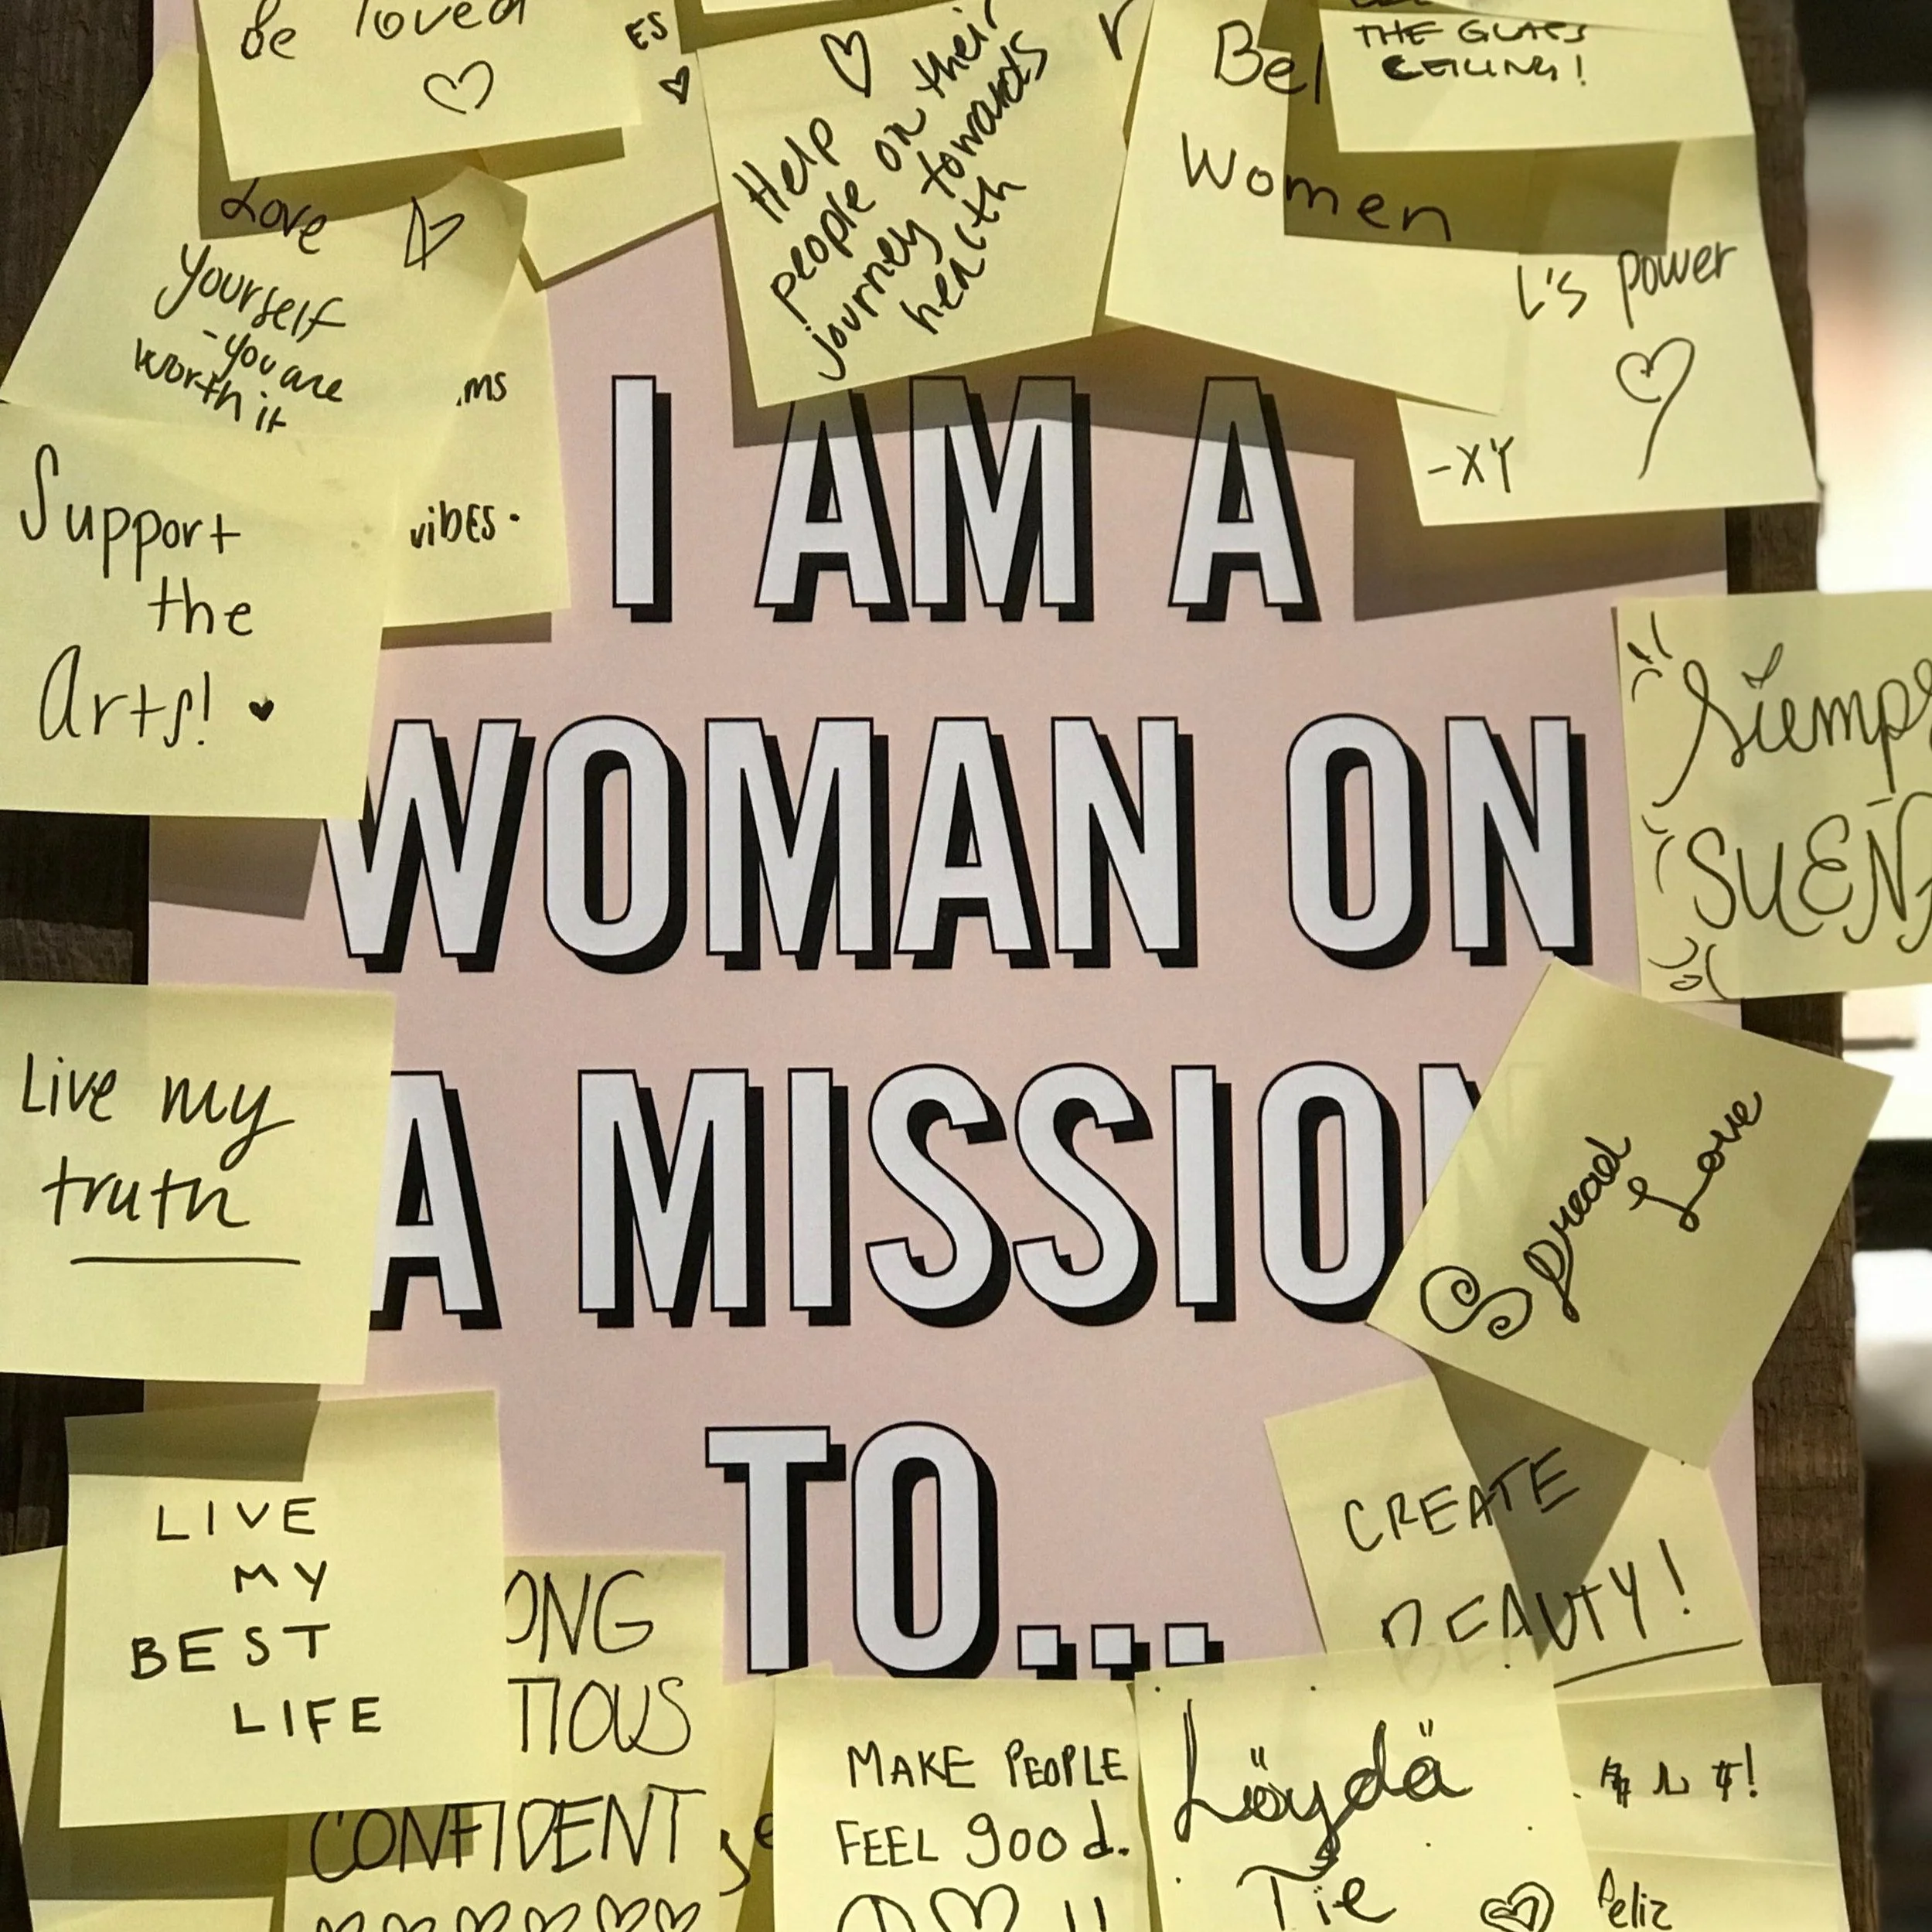 be loved
ES
Help
people on their
journey towards
health
Women
THE GLASS
CEILING!
L's power
-XY
Love
yourself
-you are
worth it
ms
vibes.
Support
the
Arts!
I AM A
WOMAN ON
A MISSION
TO...
Live my
truth
Spread
Love
LIVE
MY
BEST
LIFE
ONG
TIOUS
CONFIDENT
CREATE
BEAUTY!
MAKE PEOPLE
FEEL good.
Löydä
Tie
Feliz